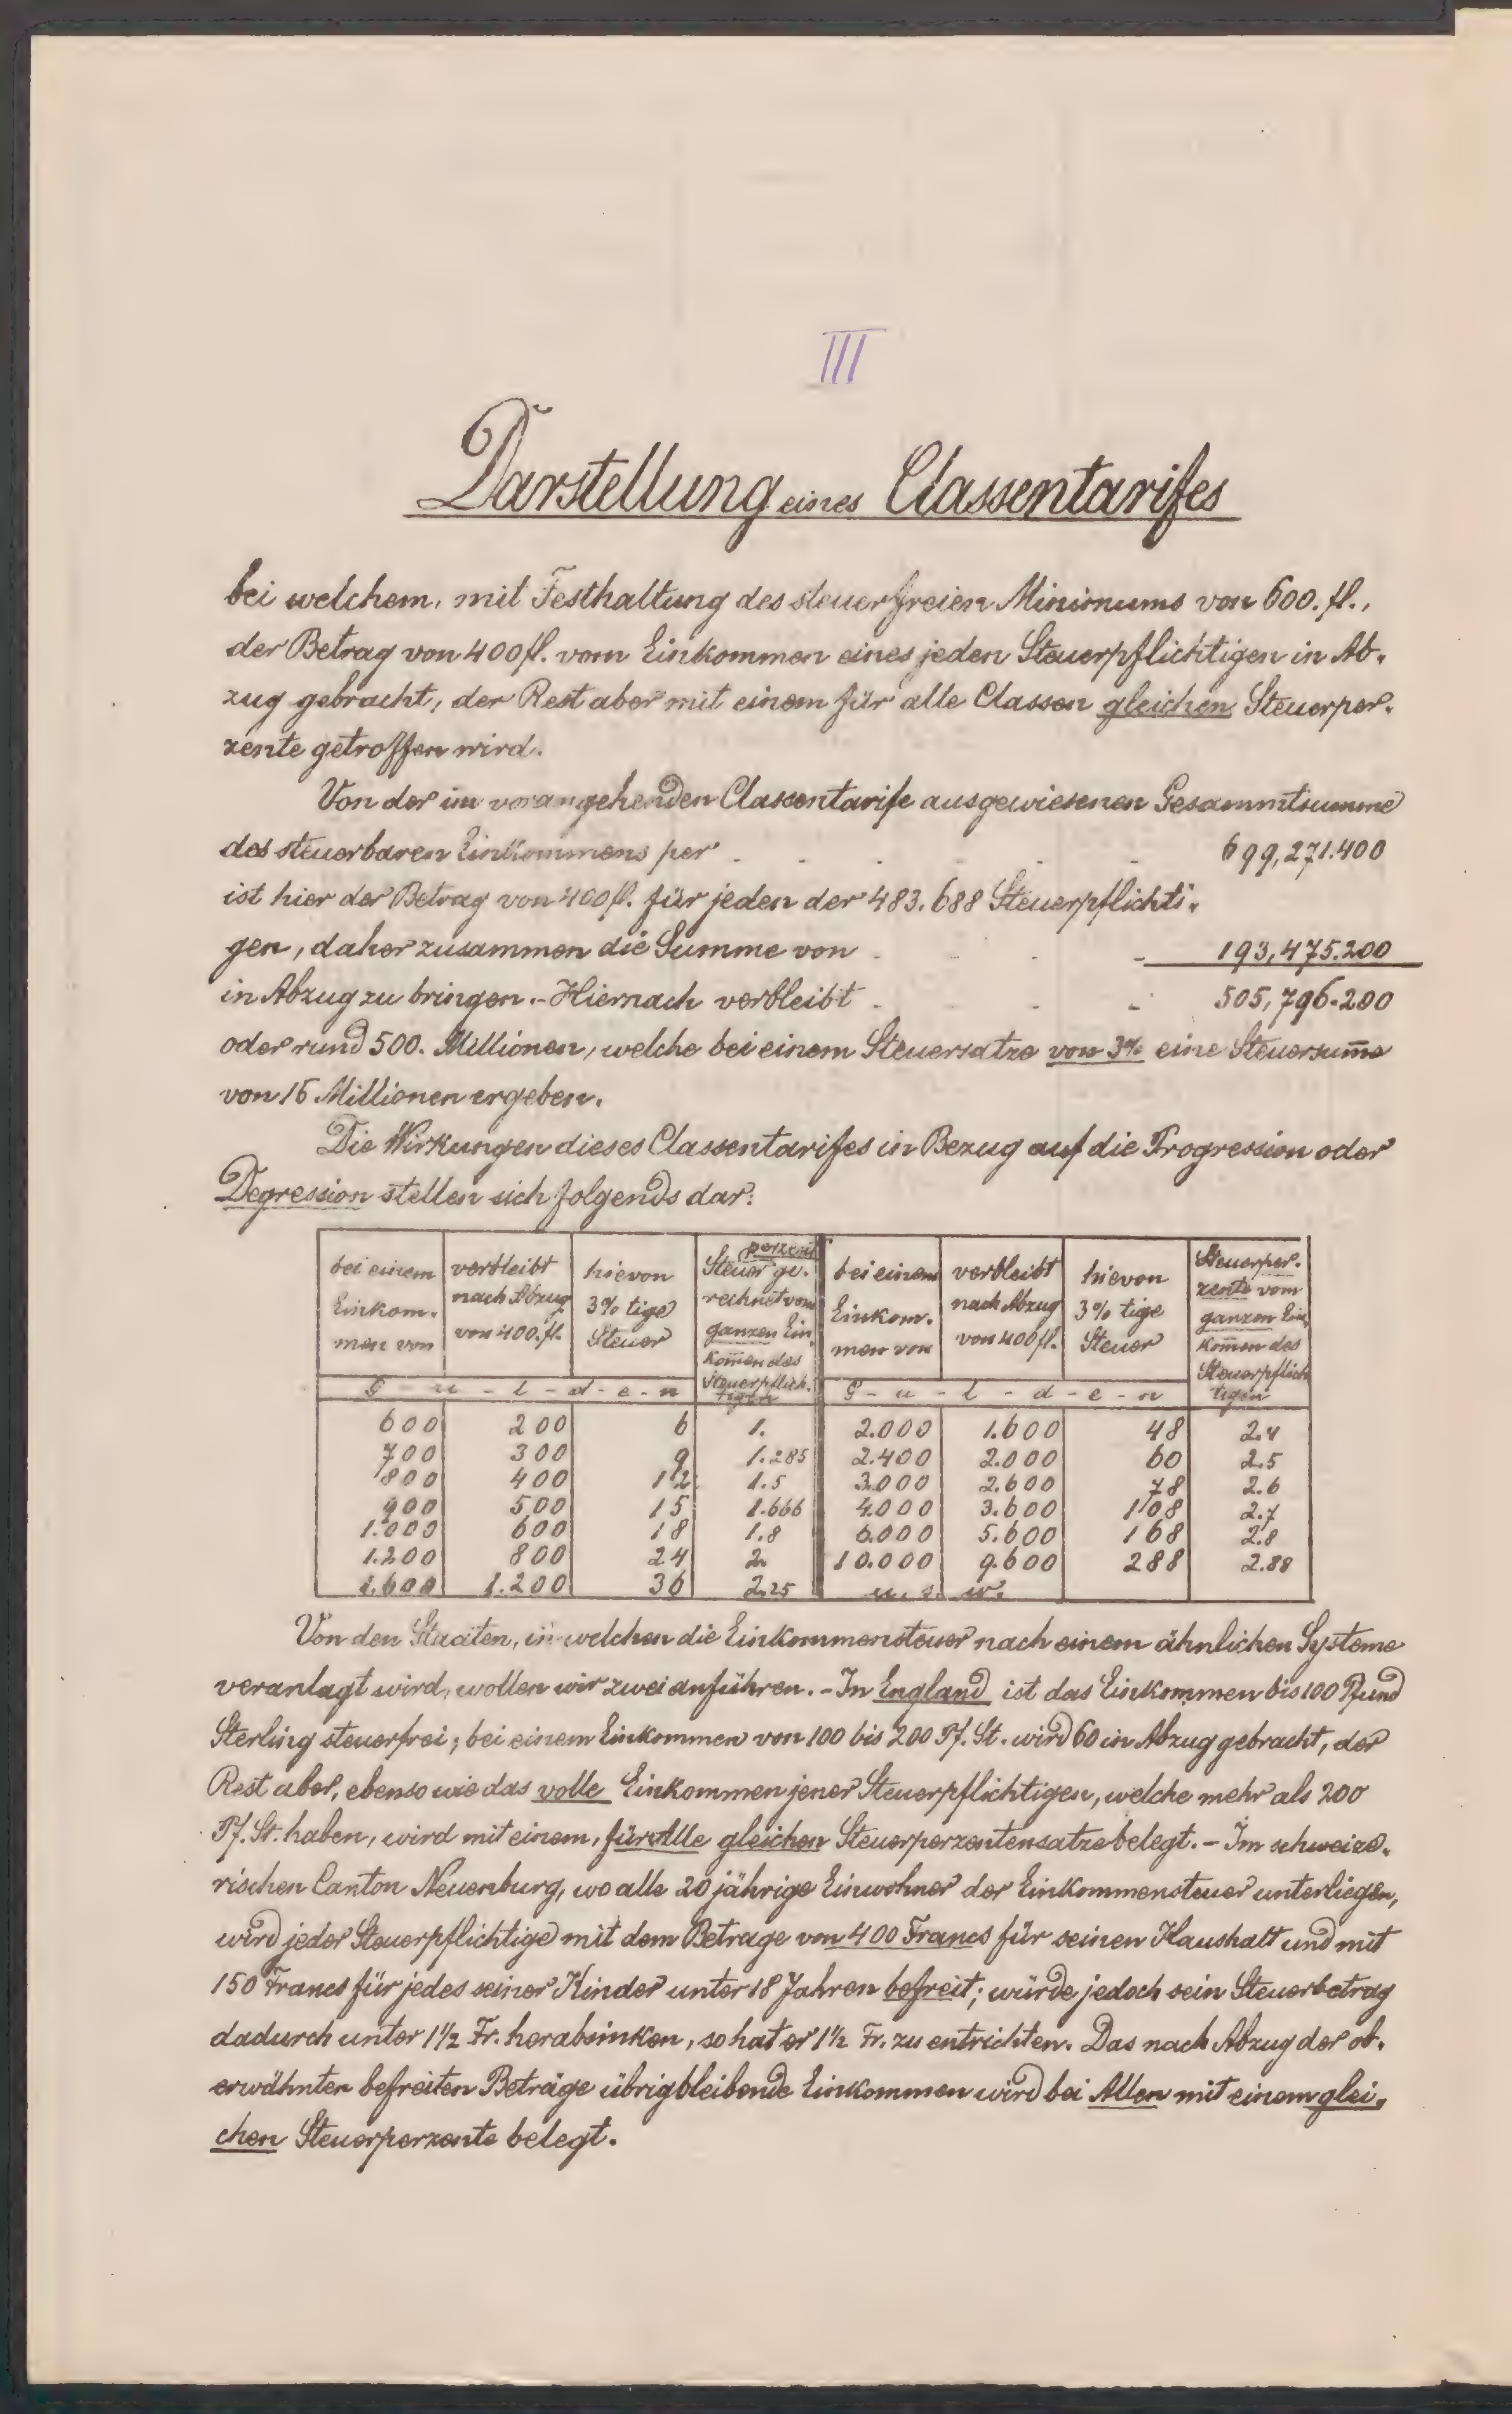 III
Darstellung eines Classentarifes
bei welchem, mit Festhaltung des steuerfreien Minimums von 600. fl.,
der Betrag von 400 fl. vom Einkommen eines jeden Steuerpflichtigen in Ab-
zug gebracht, der Rest aber mit einem für alle Classen gleichen Steuerper-
zente getroffen wird.
Von der im vorangehenden Classentarife ausgewiesenen Gesammtsumme
des steuerbaren Einkommens per . . . . 699,271.400
ist hier der Betrag von 400 fl. für jeden der 483.688 Steuerpflichti-
gen, daher zusammen die Summe von . . . . 193,475.200
in Abzug zu bringen. - Hiernach verbleibt . . . 505,796.200
oder rund 500. Millionen, welche bei einem Steuersatze von 3% eine Steuersum̄e
von 15 Millionen ergeben.
Die Wirkungen dieses Classentarifes in Bezug auf die Progression oder
Degression stellen sich folgends dar:
bei einem Einkom-men von | verbleibt nach Abzug von 400. fl. | hievon 3% tige Steuer | Steuerperzent ge-rechnet vom ganzen Ein-kom̄en des Steuerpflich-tigen | bei einem Einkom-men von | verbleibt nach Abzug von 400 fl. | hievon 3% tige Steuer | Steuerper-zente vom ganzen Ein-kom̄en des Steuerpflich-tigen
G - u - l - d - e - n | G - u - l - d - e - n
600 200 6 1. 2.000 1.600 48 2.4
700 300 9 1.285 2.400 2.000 60 2.5
800 400 12 1.5 3.000 2.600 78 2.6
900 500 15 1.666 4.000 3.600 108 2.7
1.000 600 18 1.8 6.000 5.600 168 2.8
1.200 800 24 2. 10.000 9.600 288 2.88
1.600 1.200 36 2.25 u. s. w.
Von den Staaten, in welchen die Einkommensteuer nach einem ähnlichen Systeme
veranlagt wird, wollen wir zwei anführen. - In England ist das Einkommen bis 100 Pfund
Sterling steuerfrei; bei einem Einkommen von 100 bis 200 Pf. St. wird 60 in Abzug gebracht, der
Rest aber, ebenso wie das volle Einkommen jener Steuerpflichtigen, welche mehr als 200
Pf. St. haben, wird mit einem, für Alle gleichen Steuerperzentensatze belegt. - Im schweize-
rischen Canton Neuenburg, wo alle 20 jährige Einwohner der Einkommensteuer unterliegen,
wird jeder Steuerpflichtige mit dem Betrage von 400 Francs für seinen Haushalt und mit
150 Francs für jedes seiner Kinder unter 18 Jahren befreit; würde jedoch sein Steuerbetrag
dadurch unter 1½ Fr. herabsinken, so hat er 1½ Fr. zu entrichten. Das nach Abzug der ob-
erwähnten befreiten Beträge übrigbleibende Einkommen wird bei Allen mit einem glei-
chen Steuerperzente belegt.